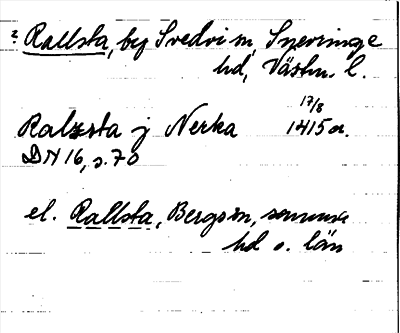 ? Rallsta, by Svedvi sn, Snevringe
hd, Västm. l.
17/8
Ralzsta j Nerka 1415 a.
DN 16, s. 70
el. Rallsta, Bergs sn, samma
hd o. län